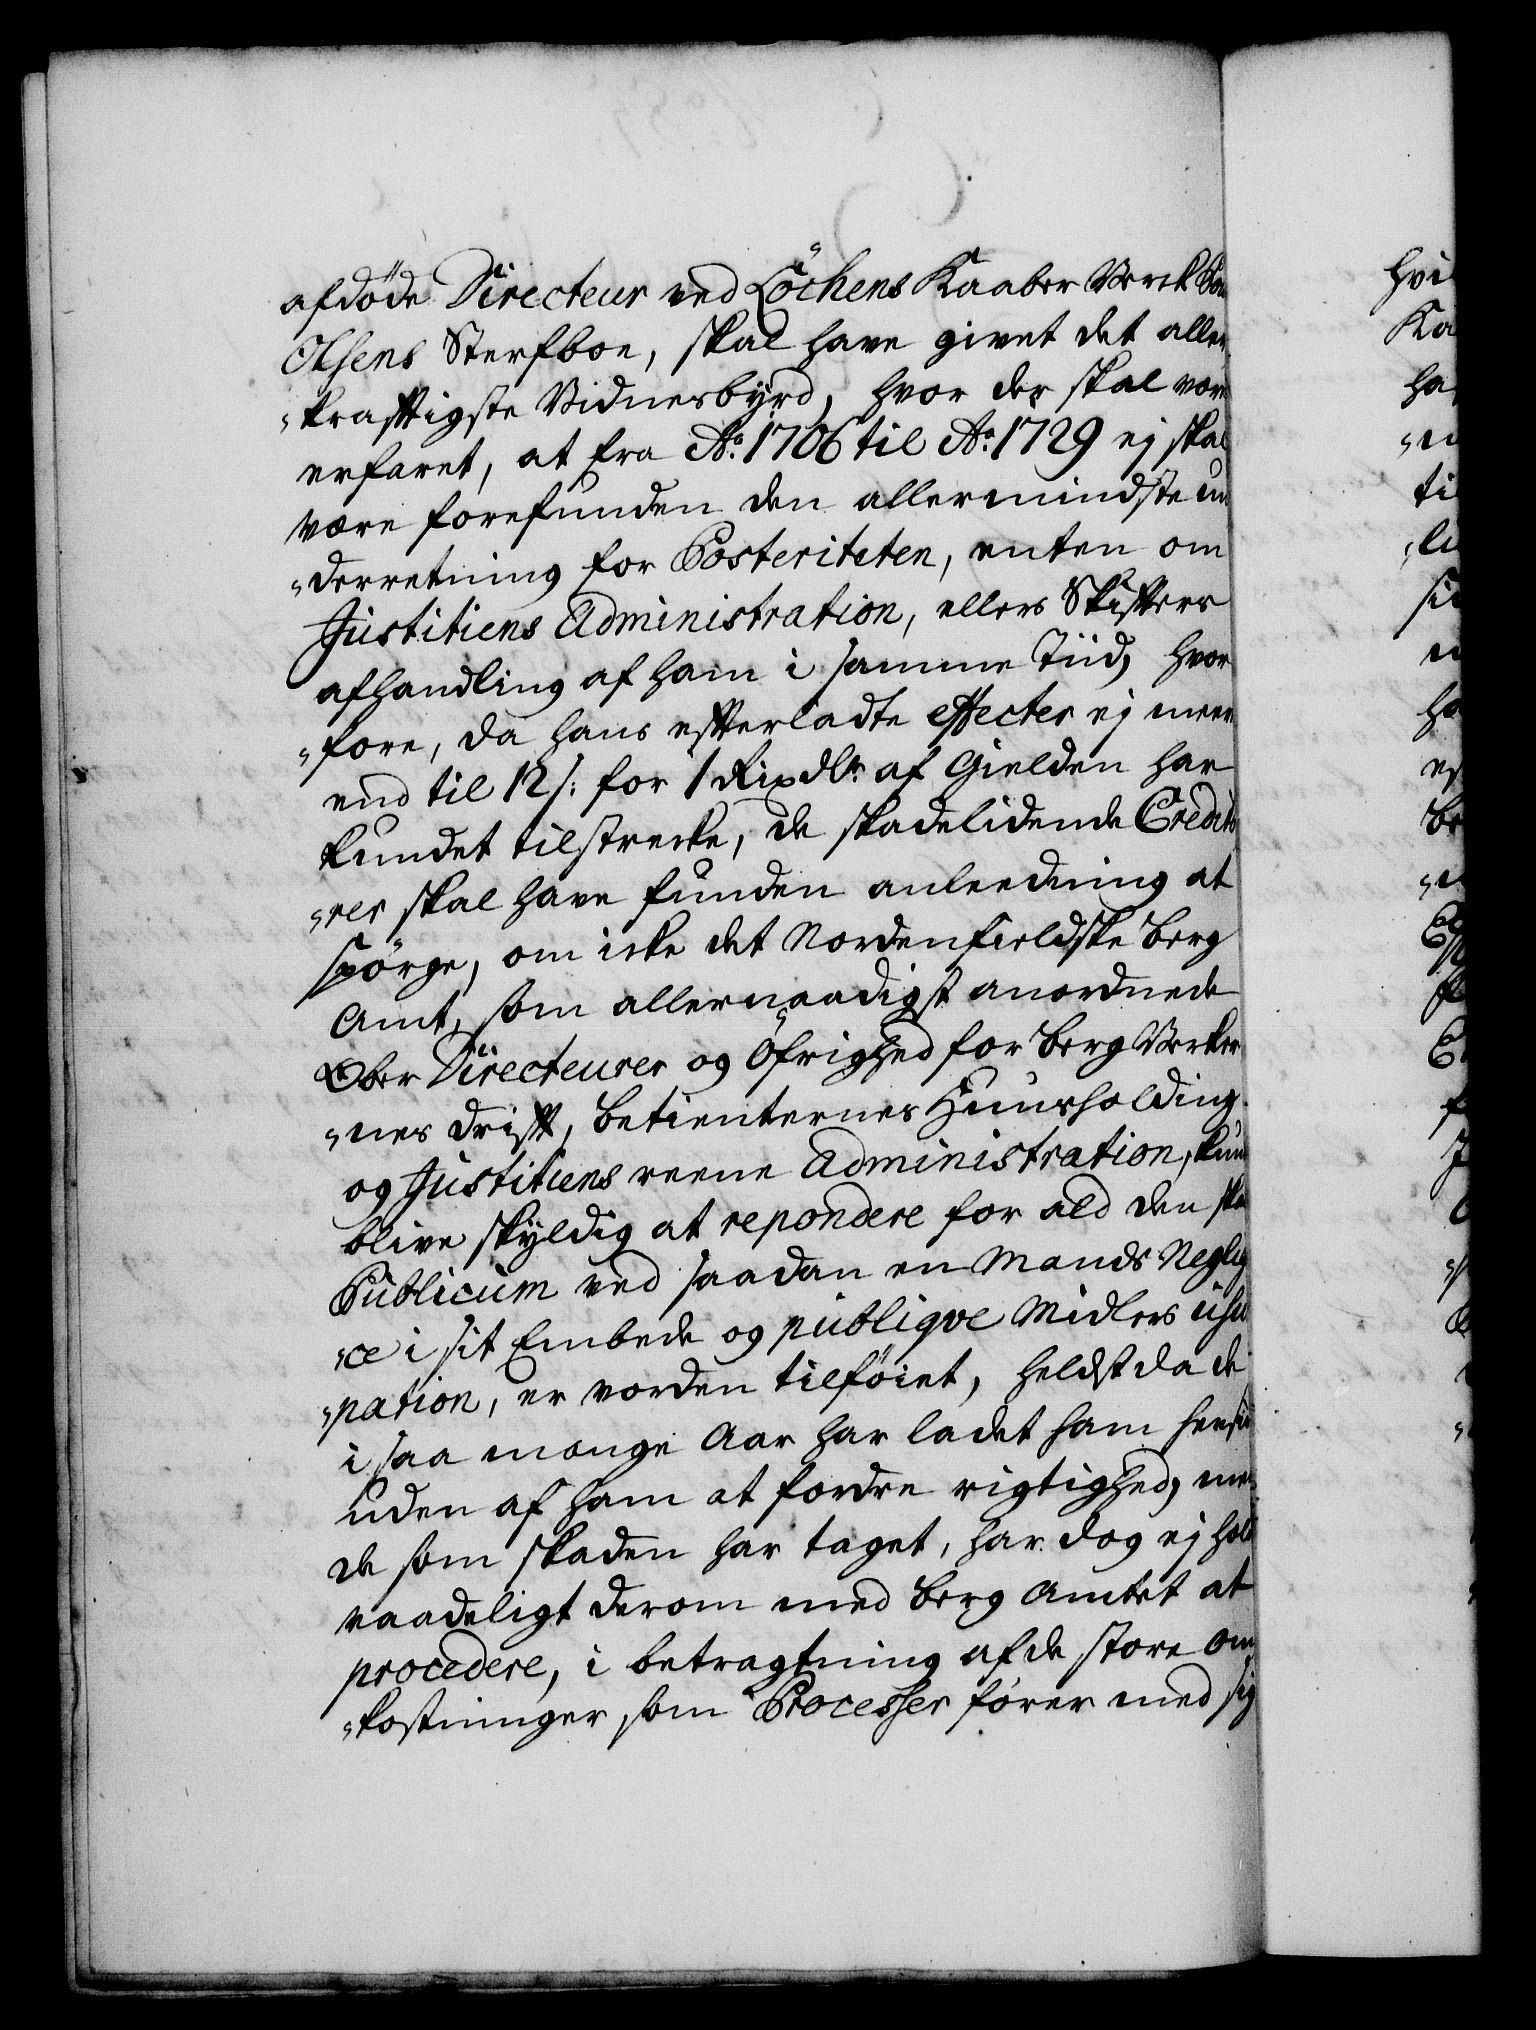 afdøde Directeur ved Löchens Kaaber Verck
Olsens Sterfboe, skal have givet det aller
„kraftigste Vidnesbÿrd, hvor der skal være
erfaret, at fra Ao. 1706 til Ao. 1729 ej skal
være forefunden den allermindste un
„derretning for Posteriteten, enten om
Justitiens Administration, eller Skifters
afhandling af ham i samme Tiid, hvor
„fore, da hans efterladte effecter ej meere
end til 12 s: for 1 Rixdlr. af Gielden har
kundet tilstrecke, de skadelidende Credito
„rer skal have funden anleedning at
spörge, om icke det Nordenfieldske Berg
Amt, som allernaadigst anordnede
Ober Directeurer og Öfrighed for Berg Verker
„nes drift, betienternes Huusholding
og Justitiens reene Administration, kunde
blive skÿldig at repondere for ald den ska
Publicum ved saadan en Mands Neglig
„ce i sit Embede og publiqve Midlers usu
„pation, er vorden tilföiet, heldst da de
i saa mange Aar har ladet ham
uden af ham at fordre rigtighed, men
de som skaden har taget, har dog ej hold
raadeligt derom med Berg Amtet at
procedere, i betragtning af de store om
„kostninger, som Processer förer med sig